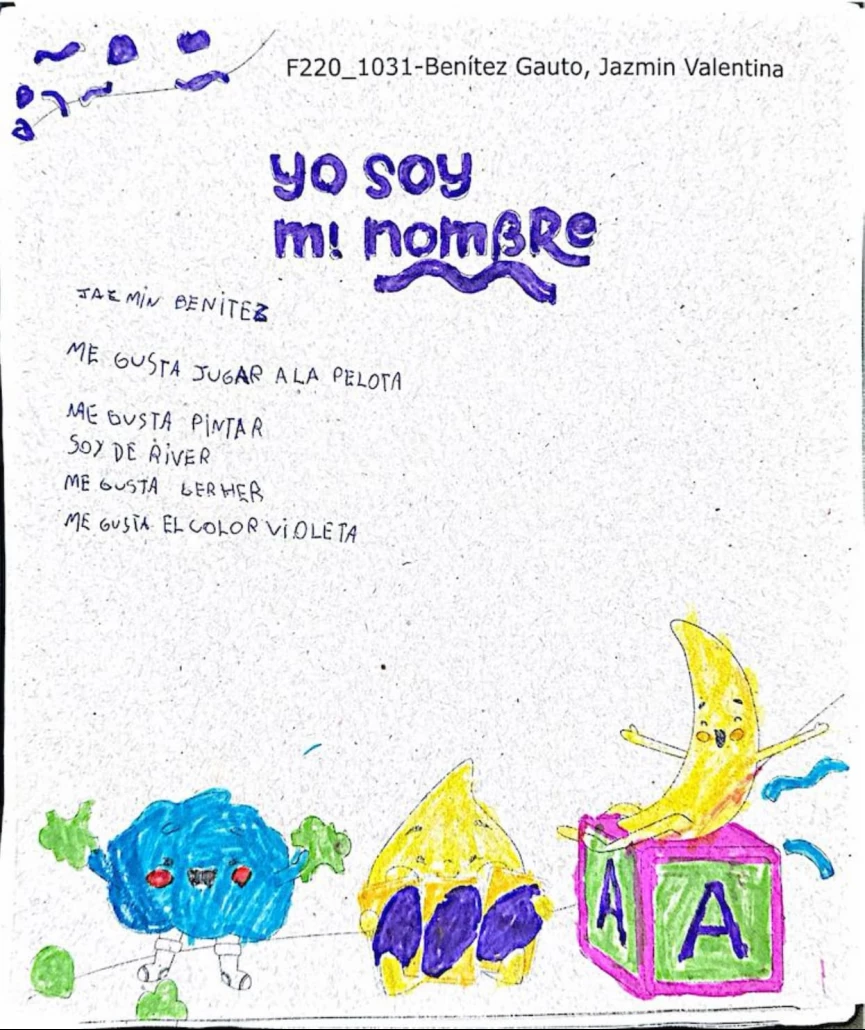 F220_1031-Benítez Gauto, Jazmin Valentina
yo soy
mi nomBRe
JAZMiN BENiTEZ
ME GUSTA JUGAR A LA PELOTA
ME GUSTA PiNTAR
SOY DE RiVER
ME GUSTA
ME GUSTA EL COLOR ViOLETA
A
A